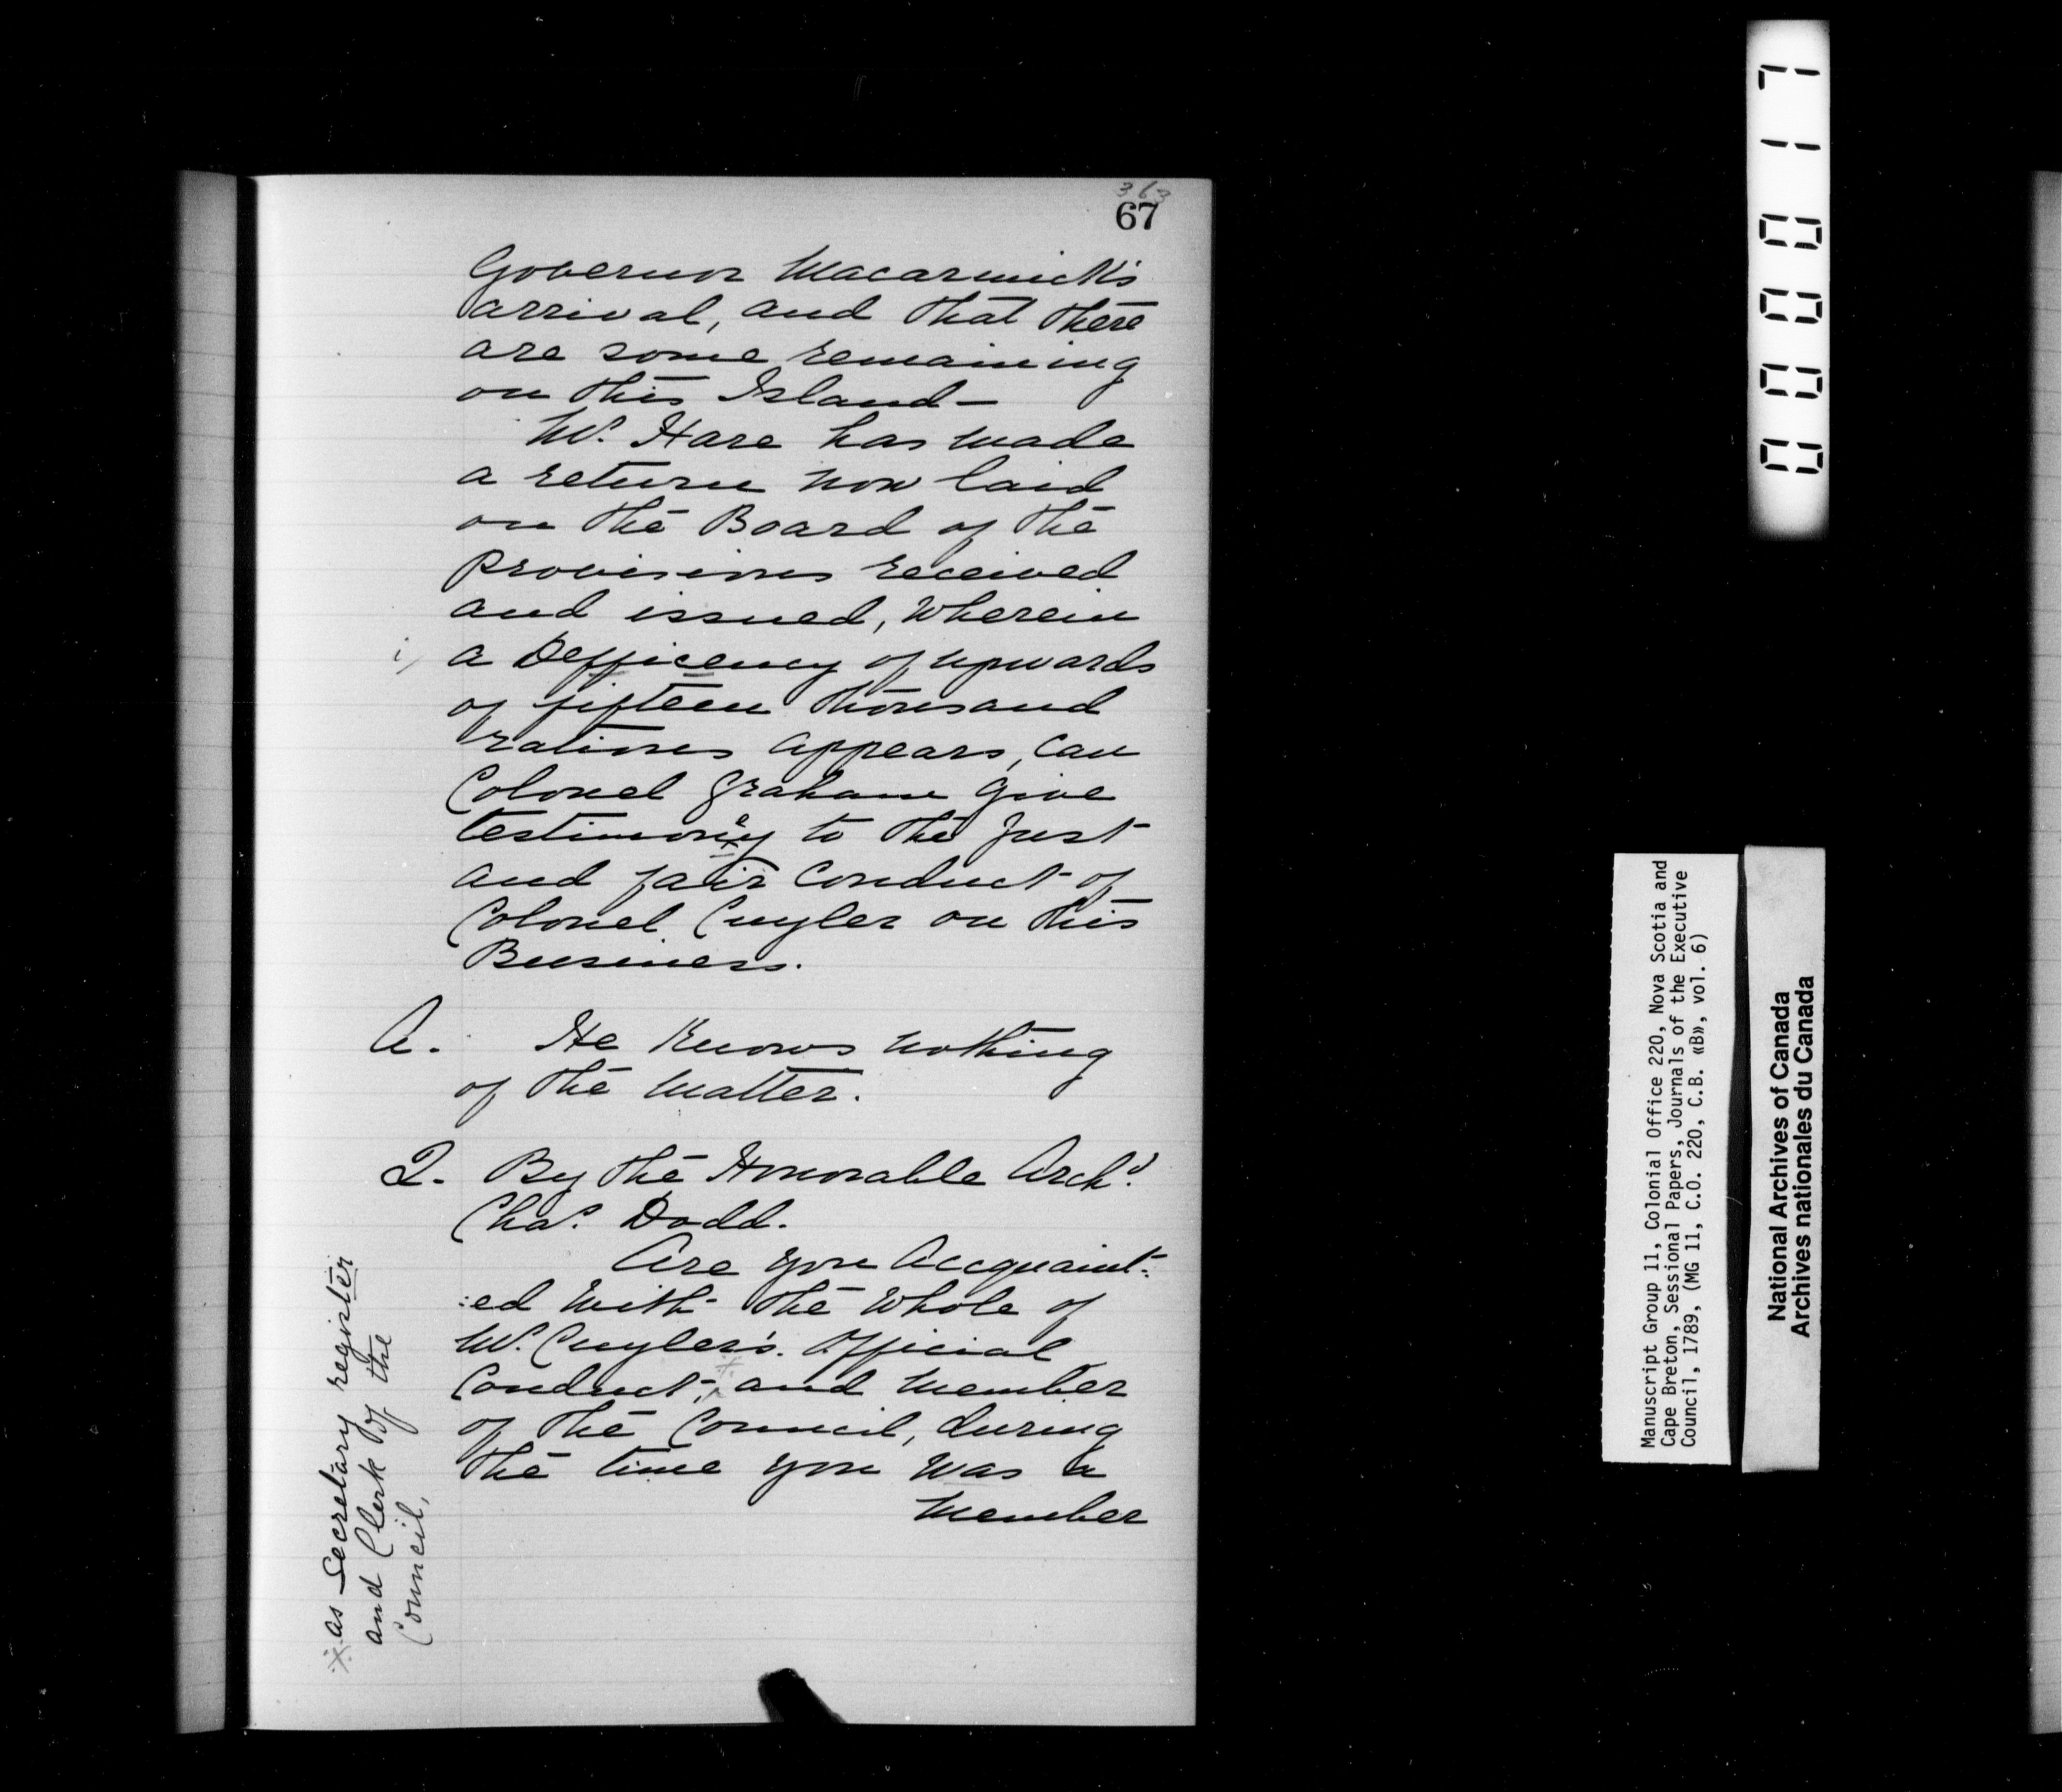 363
67
Governor Macarmick's
arrival, and that there
are some remaining
on this Island—
Mr. Hare has made
a return now laid
on the Board of the
provisions received
and issued, wherein
i/ a Defficency of upwards
of fifteen thousand
rations appears, can
Colonel Graham give
testimony to the just
and fair conduct of
Colonel Cuyler on this
Business.
A. He knows nothing
of the matter.
Q. By the Honorable Archd.
Chas. Dodd.
Are you Accquaint:
:ed with the whole of
Mr. Cuyler's. Official
Conduct, and member
of the Council, during
the time you was a
member
as Secretary register
and Clerk of the
Council,
000017
Manuscript Group 11, Colonial Office 220, Nova Scotia and
Cape Breton, Sessional Papers, Journals of the Executive
Council, 1789, (MG 11, C.O. 220, C.B. «B», vol. 6)
National Archives of Canada
Archives nationales du Canada